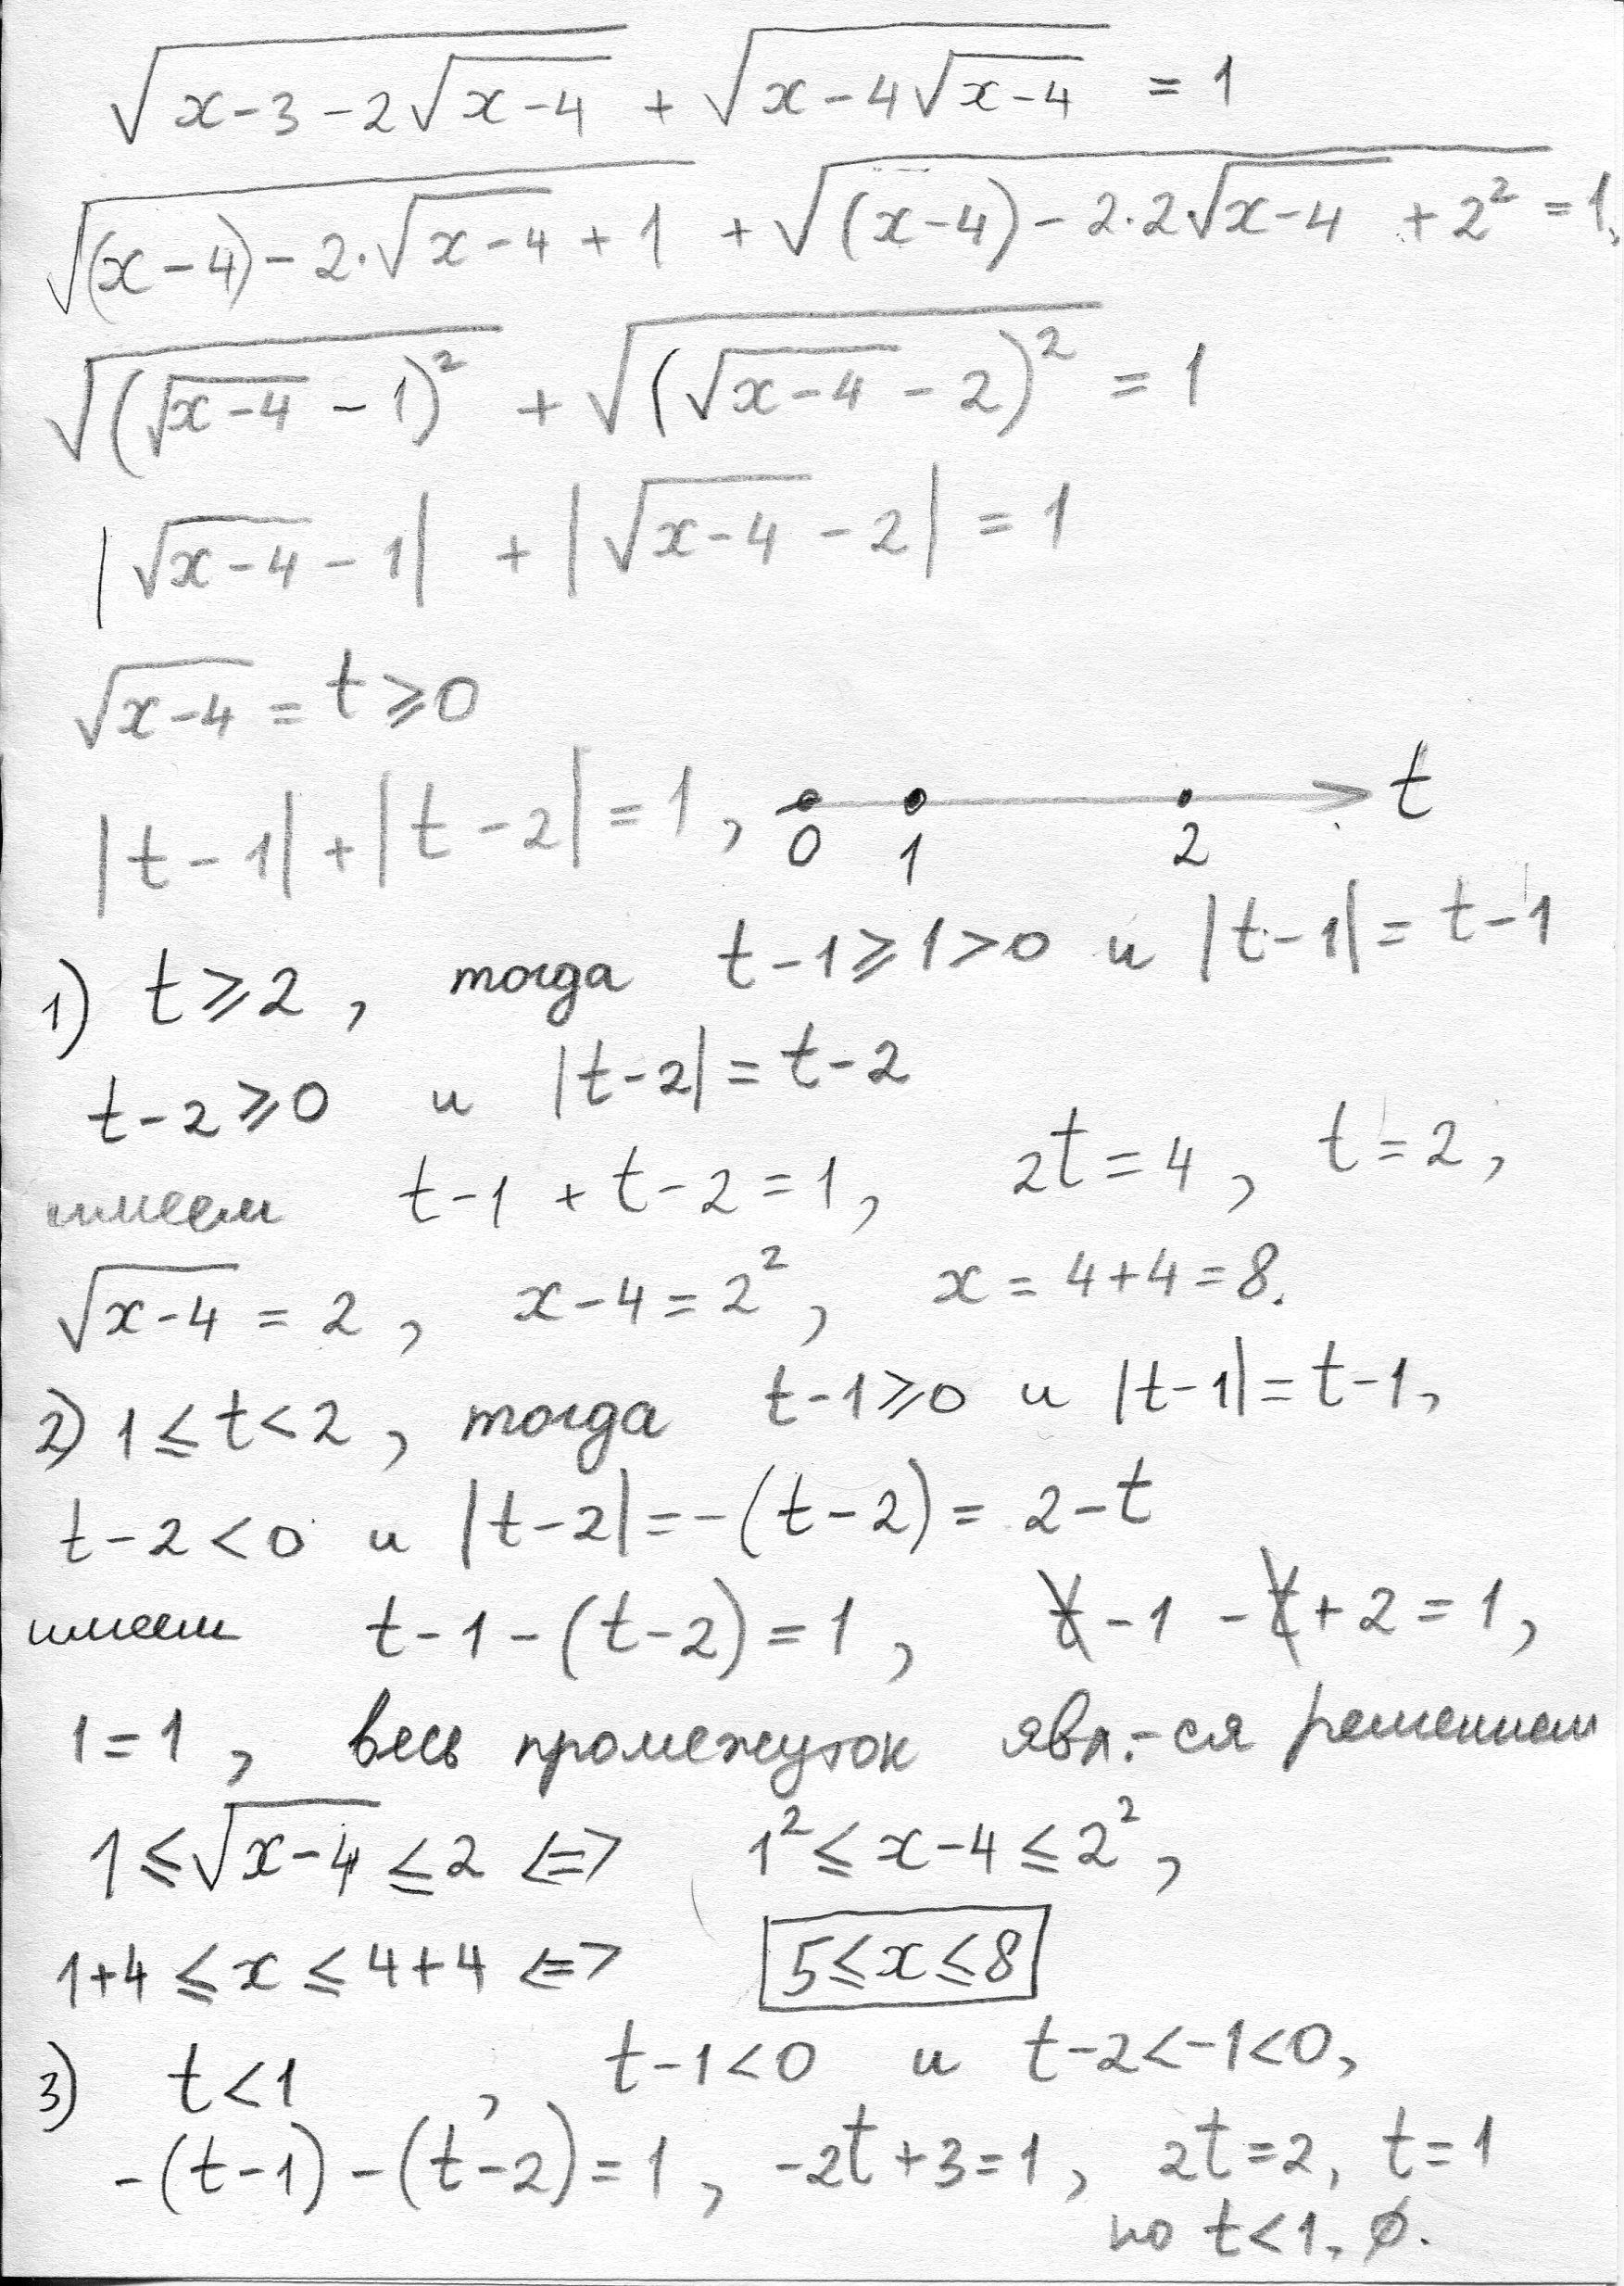 √(x-3-2√(x-4)) + √(x-4√(x-4)) = 1
√((x-4)-2·√(x-4)+1) + √((x-4)-2·2√(x-4)+2²) = 1,
√((√(x-4)-1)²) + √((√(x-4)-2)²) = 1
|√(x-4)-1| + |√(x-4)-2| = 1
√(x-4) = t ⩾ 0
|t-1|+|t-2|=1, 0 1 2 t
1) t⩾2, тогда t-1⩾1>0 и |t-1|=t-1
t-2⩾0 и |t-2|=t-2
имеем t-1+t-2=1, 2t=4, t=2,
√(x-4) = 2, x-4=2², x=4+4=8.
2) 1≤t<2, тогда t-1⩾0 и |t-1|=t-1,
t-2<0 и |t-2|=-(t-2)=2-t
имеем t-1-(t-2)=1, t-1-t+2=1,
1=1, весь промежуток явл.-ся решением
1≤√(x-4)≤2 <=> 1²≤x-4≤2²,
1+4≤x≤4+4 <=> 5≤x≤8
3) t<1, t-1<0 и t-2<-1<0,
-(t-1)-(t-2)=1, -2t+3=1, 2t=2, t=1
но t<1, ∅.